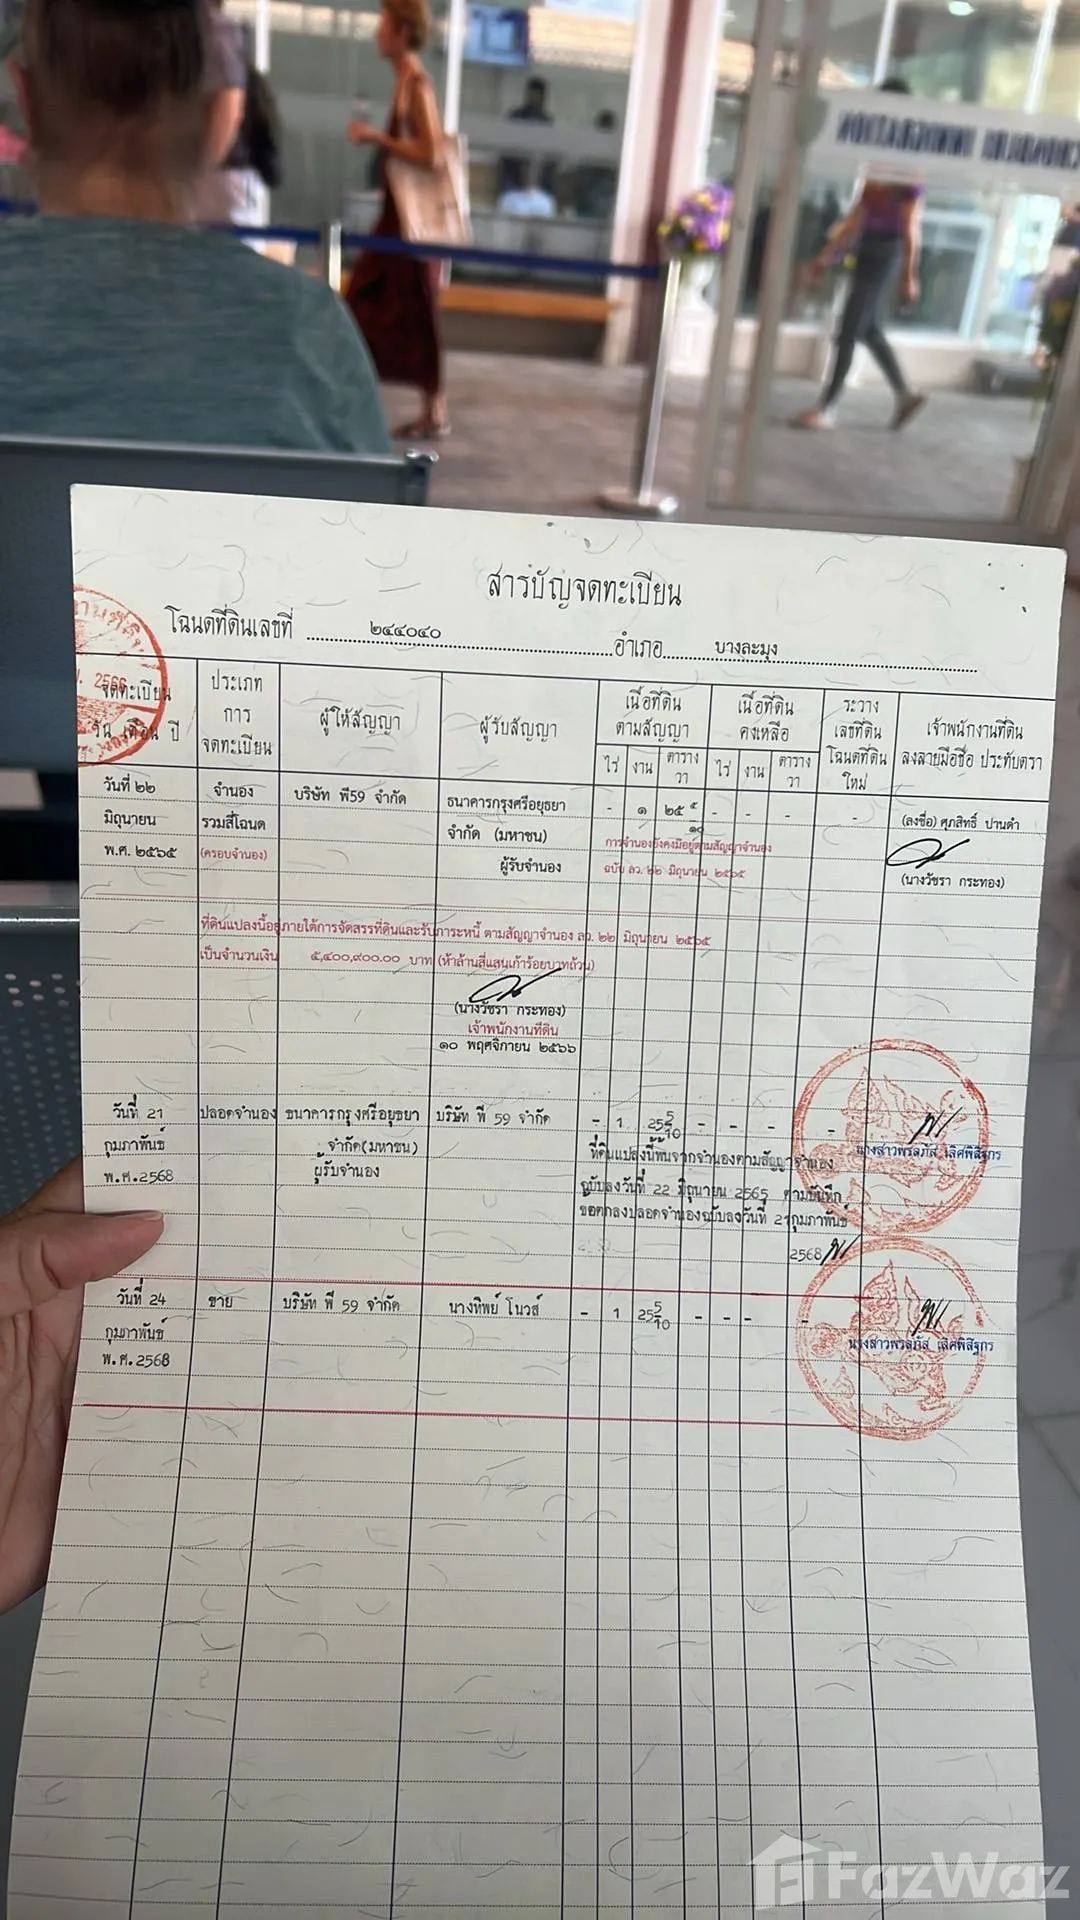 สารบัญจดทะเบียน
โฉนดที่ดินเลขที่ ๒๔๔๐๔๐ อำเภอ บางละมุง
จดทะเบียน
วัน เดือน ปี
ประเภท
การ
จดทะเบียน
ผู้ให้สัญญา
ผู้รับสัญญา
เนื้อที่ดิน
ตามสัญญา
ไร่ งาน ตาราง
วา
เนื้อที่ดิน
คงเหลือ
ไร่ งาน ตาราง
วา
ระวาง
เลขที่ดิน
โฉนดที่ดิน
ใหม่
เจ้าพนักงานที่ดิน
ลงลายมือชื่อ ประทับตรา
2566
วันที่ ๒๒
มิถุนายน
พ.ศ. ๒๕๖๕
จำนอง
รวมสี่โฉนด
(ครอบจำนอง)
บริษัท พี59 จำกัด
ธนาคารกรุงศรีอยุธยา
จำกัด (มหาชน)
ผู้รับจำนอง
- ๑ ๒๕ ๕/๑๐ - - - -
การจำนองยังคงมีอยู่ตามสัญญาจำนอง
ฉบับ ลว. ๒๒ มิถุนายน ๒๕๖๕
(ลงชื่อ) ศุภสิทธิ์ ปานดำ
(นางวัชรา กระทอง)
ที่ดินแปลงนี้อยู่ภายใต้การจัดสรรที่ดินและรับภาระหนี้ ตามสัญญาจำนอง ลว. ๒๒ มิถุนายน ๒๕๖๕
เป็นจำนวนเงิน ๕,๔๐๐,๙๐๐.๐๐ บาท (ห้าล้านสี่แสนเก้าร้อยบาทถ้วน)
(นางวัชรา กระทอง)
เจ้าพนักงานที่ดิน
๑๐ พฤศจิกายน ๒๕๖๖
วันที่ 21
กุมภาพันธ์
พ.ศ.2568
ปลอดจำนอง
ธนาคารกรุงศรีอยุธยา
จำกัด(มหาชน)
ผู้รับจำนอง
บริษัท พี 59 จำกัด
- 1 25 5/10 - - - -
ที่ดินแปลงนี้พ้นจากจำนองตามสัญญาจำนอง
ฉบับลงวันที่ 22 มิถุนายน 2565 ตามบันทึก
ข้อตกลงปลอดจำนองฉบับลงวันที่ 21กุมภาพันธ์
2568
นางสาวพรลภัส เลิศพิสิฐกร
วันที่ 24
กุมภาพันธ์
พ.ศ.2568
ขาย
บริษัท พี 59 จำกัด
นางทิพย์ โนวส์
- 1 25 5/10 - - - -
นางสาวพรลภัส เลิศพิสิฐกร
FazWaz